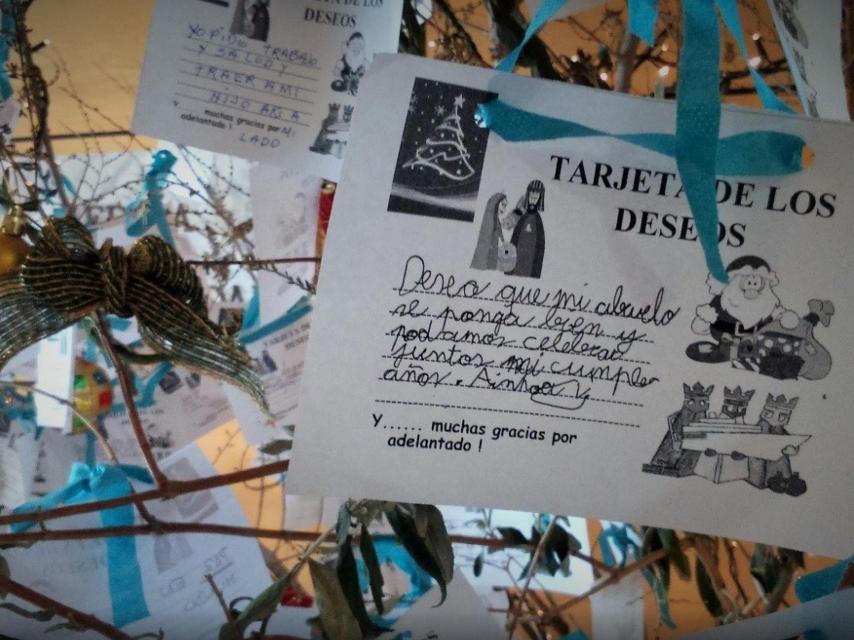 DESEOS
YO PIDO TRABAJO
Y SALUD Y
TRAER A MI
HIJO A
Y
muchas gracias por MI
adelantado !
LADO
TARJETA DE LOS
DESEOS
Deseo que mi abuelo
se ponga bien y
podamos celebrar
juntos mi cumple
años. Ainhoa
Y...... muchas gracias por
adelantado !